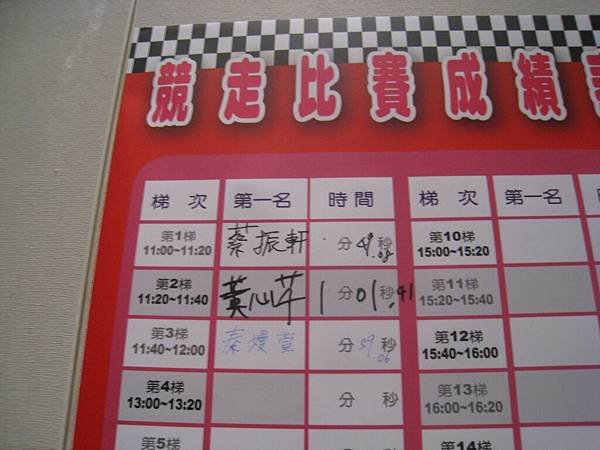 競走比賽成績
梯次 第一名 時間 梯次 第一名
第1梯 11:00~11:20 蔡振軒 分49秒.08 第10梯 15:00~15:20
第2梯 11:20~11:40 黃心芊 1分01秒.41 第11梯 15:20~15:40
第3梯 11:40~12:00 秦熳萱 分59秒.06 第12梯 15:40~16:00
第4梯 13:00~13:20 分 秒 第13梯 16:00~16:20
第5梯 第14梯